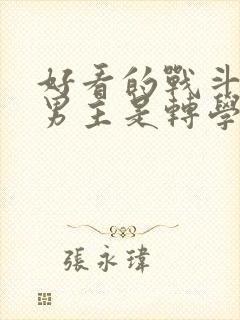 好看的戰斗
男主是轉學
張永瑋